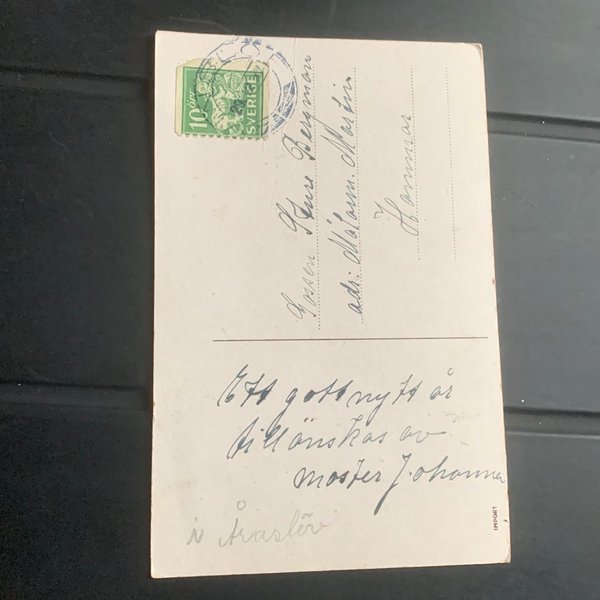 10 öre
SVERIGE
Gossen Sture Bergman
adr: Målarm. Martin
Hammar
Ett gott nytt år
tillönskas av
moster Johanna
Åraslöv
IMPORT